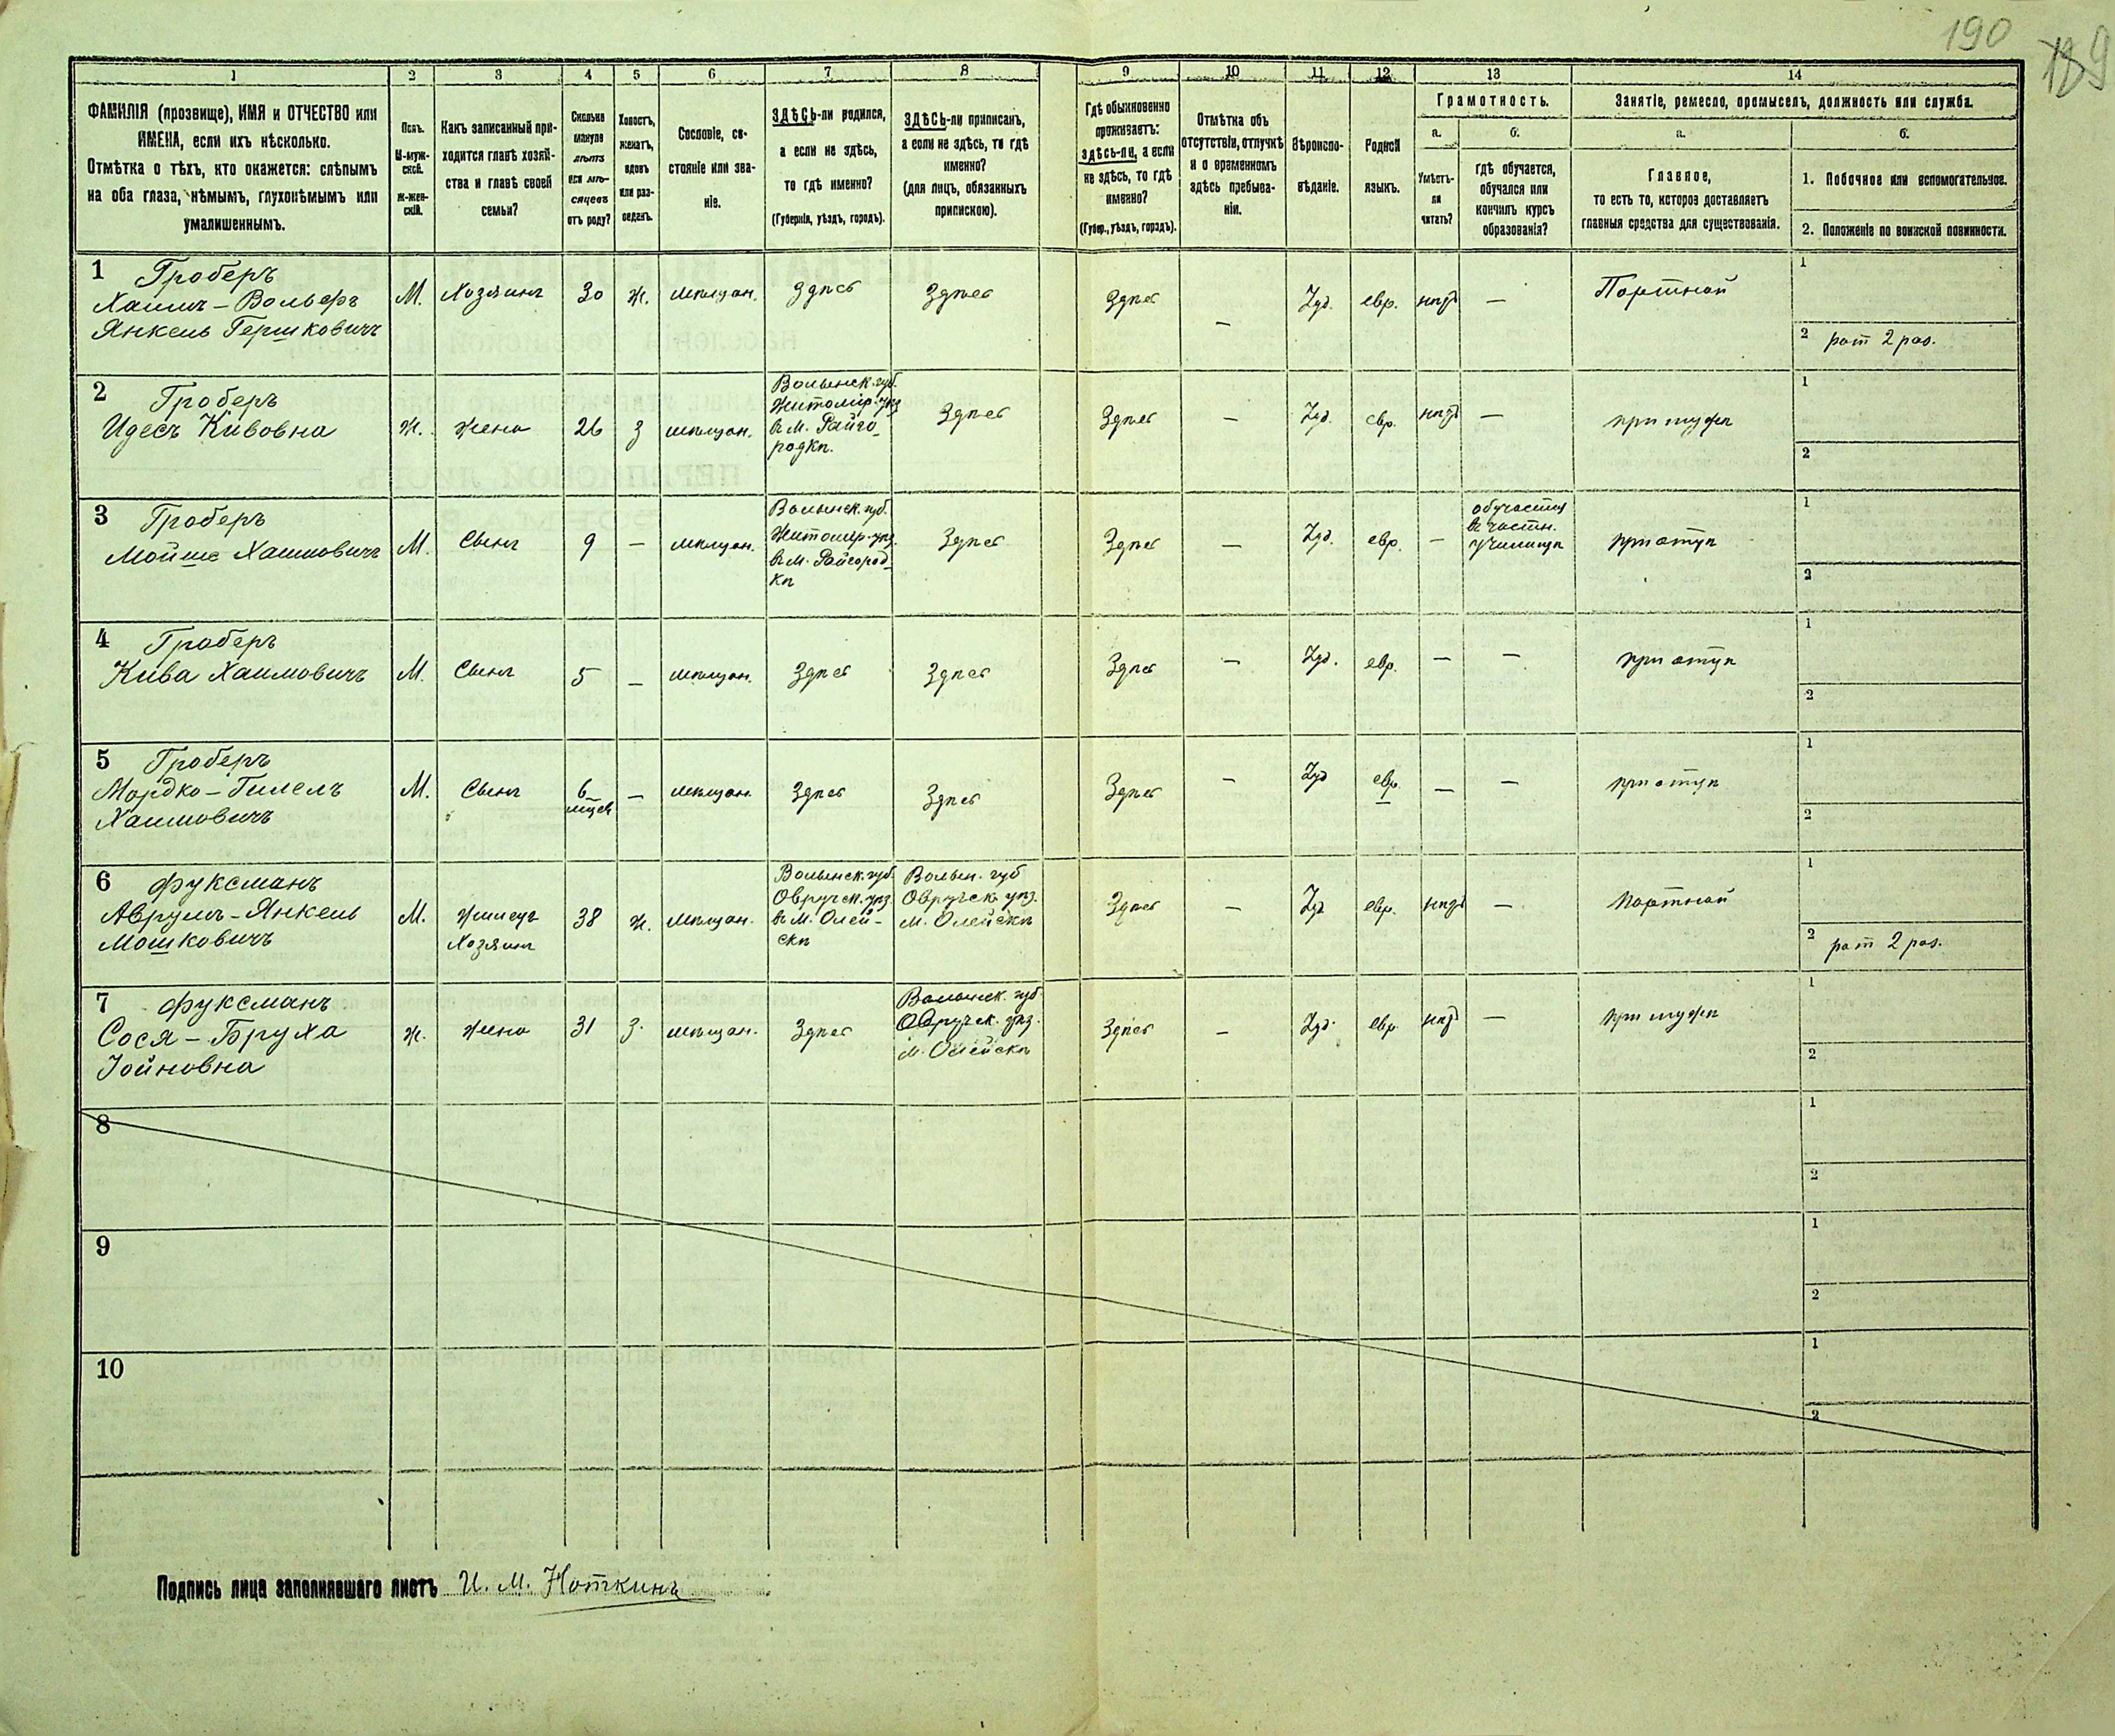 190
189
1
2
3
4
5
6
7
8
9
10
11
12
13
14
ФАМИЛІЯ (прозвище), ИМЯ и ОТЧЕСТВО или
ИМЕНА, если ихъ нѣсколько.
Отмѣтка о тѣхъ, кто окажется: слѣпымъ
на оба глаза, нѣмымъ, глухонѣмымъ или
умалишеннымъ.
Полъ.
М-муж-
ской.
Ж-жен-
скій.
Какъ записанный при-
ходится главѣ хозяй-
ства и главѣ своей
семьи?
Сколько
минуло
лѣтъ
или мѣ-
сяцевъ
отъ роду?
Холостъ,
женатъ,
вдовъ
или раз-
веденъ.
Сословіе, со-
стояніе или зва-
ніе.
ЗДѢСЬ-ли родился,
а если не здѣсь,
то гдѣ именно?
(Губернія, уѣздъ, городъ).
ЗДѢСЬ-ли приписанъ,
а если не здѣсь, то гдѣ
именно?
(для лицъ, обязанныхъ
припискою).
Гдѣ обыкновенно
проживаетъ:
здѣсь-ли, а если
не здѣсь, то гдѣ
именно?
(Губер., уѣздъ, городъ).
Отмѣтка объ
отсутствіи, отлучкѣ
и о временномъ
здѣсь пребыва-
ніи.
Вѣроиспо-
вѣданіе.
Родной
языкъ.
Грамотность.
а.
б.
Умѣетъ-
ли
читать?
гдѣ обучается,
обучался или
кончилъ курсъ
образованія?
Занятіе, ремесло, промыселъ, должность или служба.
а.
б.
Главное,
то есть то, которое доставляетъ
главныя средства для существованія.
1. Побочное или вспомогательное.
2. Положеніе по воинской повинности.
1 Гроберъ
Хаимъ-Вольфъ
Янкель Гершковичъ
М.
Хозяинъ
30
ж.
мѣщан.
Здѣсь
Здѣсь
Здѣсь
—
Іуд.
евр.
нѣтъ
—
Портной
1
2 рат 2 раз.
2 Гроберъ
Идесъ Кивовна
Ж.
Жена
26
з
мѣщан.
Волынск. губ.
Житомір. уѣз
въ М. Райго-
родкѣ.
Здѣсь
Здѣсь
—
Іуд.
евр.
нѣтъ
—
при мужѣ
1
2
3 Гроберъ
Мойше Хаимовичъ
М.
Сынъ
9
—
мѣщан.
Волынск. губ.
Житомир. уѣз.
въ М. Райгород-
кѣ
Здѣсь
Здѣсь
—
Іуд.
евр.
—
обучается
въ частн.
училищѣ
при отцѣ
1
2
4 Гроберъ
Кива Хаимовичъ
М.
Сынъ
5
—
мѣщан.
Здѣсь
Здѣсь
Здѣсь
—
Іуд.
евр.
—
—
при отцѣ
1
2
5 Гроберъ
Мордко-Гилелъ
Хаимовичъ
М.
Сынъ
6
мѣсев
—
мѣщан.
Здѣсь
Здѣсь
Здѣсь
—
Іуд
евр.
—
—
при отцѣ
1
2
6 Фуксманъ
Аврумъ-Янкель
Мошковичъ
М.
Жилецъ
Хозяинъ
38
ж.
мѣщан.
Волынск. губ.
Овручск. уѣз
въ М. Олей-
скѣ
Волын. губ
Овручск уѣз.
М. Олейскѣ
Здѣсь
—
Іуд
евр.
нѣтъ
—
Портной
1
2 рат 2 раз.
7 Фуксманъ
Сося-Бруха
Іойновна
Ж.
Жена
31
з.
мѣщан.
Здѣсь
Волынск. губ
Овручск. уѣз.
М. Олейскѣ
Здѣсь
—
Іуд.
евр.
нѣтъ
—
при мужѣ
1
2
8
1
2
9
1
2
10
1
2
Подпись лица заполнявшаго листъ И. М. Ноткинъ